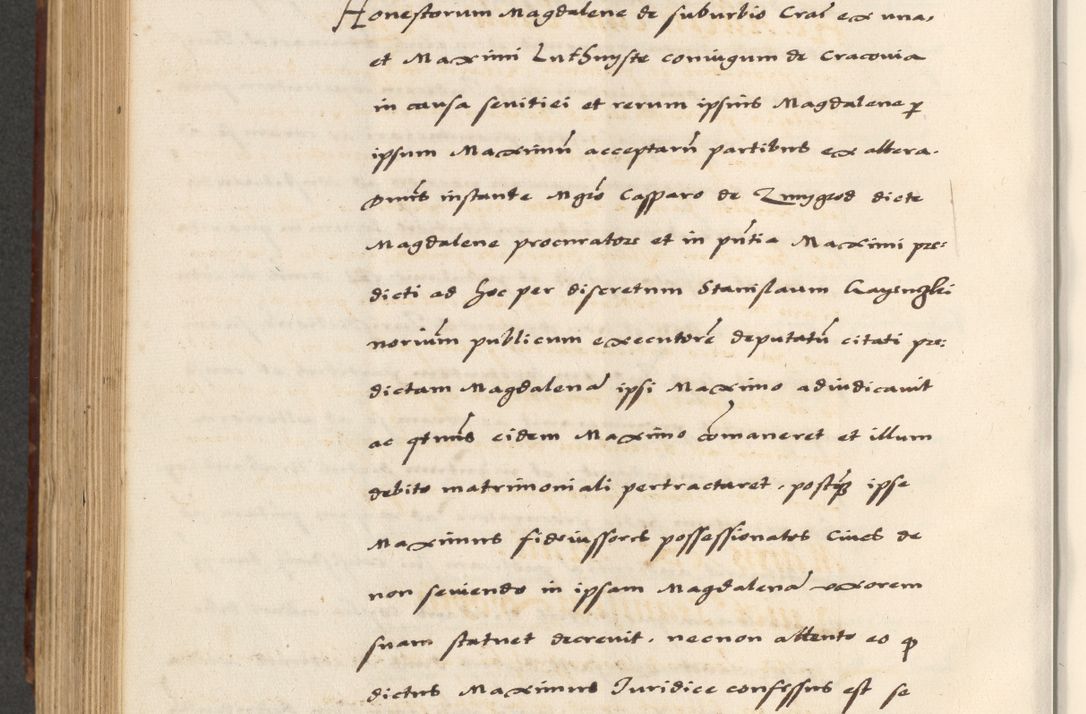 Honestorum Magdalene de suburbio Crac̄ ex una,
et Maximi Luthnyste coniugum de Cracovia
in causa sevitiei et rerum ipsius Magdalene p̱
ipsum Maximū acceptarū partibus ex altera.
Dnūs instante Mgr̄o Casparo de Zmygrod dicte
Magdalene procuratore et in pn̄tia Maximi pre:
dicti ad hoc per discretum Stanislaum
notariūm publicum executorē deputatū citati pre:
dictam Magdalenā ipsi Maximo adiudicavit
ac qtnūs eidem Maximo cōmaneret et illum
debito matrimoniali pertractaret, postq̄ ipse
Maximus fideiussores possessionatos cives de
non seviendo in ipsam Magdalenā uxorem
suam statuet decrevit. necnon attento eo ꝙ
dictus Maximus Iuridice confessus est se